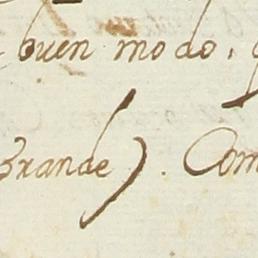 buen modo,
Grande). Com